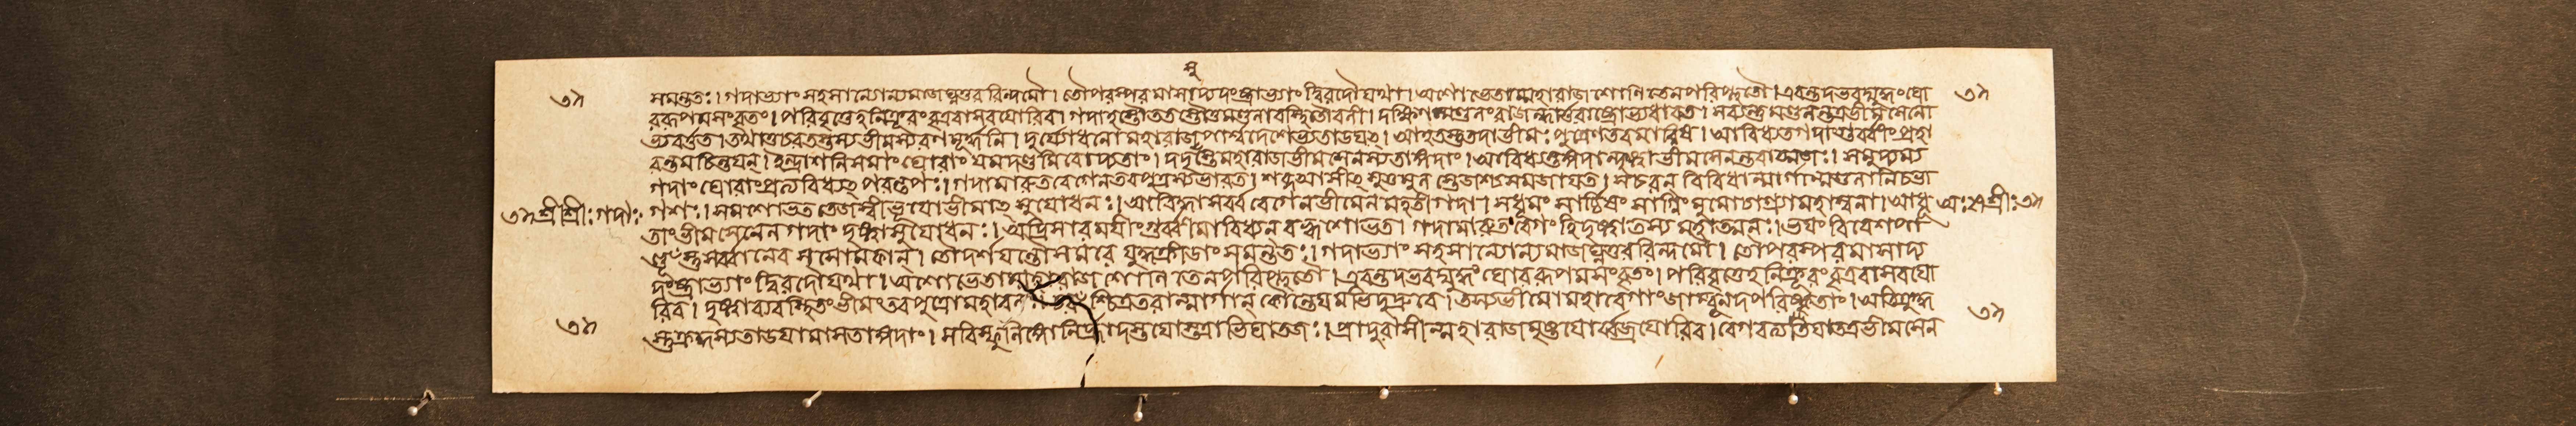 সু
৩৯ সমন্ততঃ। গদাভ্যাং সহসান্যোন্যমাজঘ্নতুররিন্দমৌ। তৌপরস্পরমাসাদ্যদংষ্ট্রাভ্যাং দ্বিরদৌযথা। অশোভেতাম্মহারাজশোনিতেনপরিপ্লুতৌ। এবন্তদভবদ্যুদ্ধংঘো ৩৯
ররূপমসংবৃতং। পরিবৃত্তেহনিক্রূরংবৃত্রবাসবযোরিব। গদাহস্তৌততস্তৌতুমণ্ডলাবস্থিতৌবলী। দক্ষিণম্মণ্ডলংরাজন্ধার্ত্তরাষ্ট্রোভ্যবর্ত্তত। সব্যন্তুমণ্ডলন্তত্রভীমসেনো
ভ্যবর্ত্তত। তথাতুচরতস্তস্যভীমস্যরণমূর্দ্ধনি। দুর্য্যোধনোমহারাজপার্শ্বদেশেভ্যতাডযৎ। আহতস্তুতদাভীমঃপুত্রেণতবমারিষ। আবিধ্যতগদাংগুর্ব্বীংপ্রহা
রন্তমচিন্তযন্। ইন্দ্রাশনিসমাং ঘোরাং যমদণ্ডমিবোদ্যতাং। দদৃশুস্তেমহারাজভীমসেনস্যতাঙ্গদাং। আবিধ্যন্তঙ্গদান্দৃষ্ট্বাভীমসেনন্তবাত্মজঃ। সমুদ্যম্য
গদাং ঘোরাংপ্রত্যবিধ্যৎ পরন্তপঃ। গদামারুতবেগেনতবপুত্রস্যভারত। শব্দআসীৎ সুতুমুলস্তেজশ্চসমজাযত। সচরন্ বিবিধান্মার্গান্মণ্ডলানিচভা
৩৯ শ্রীশ্রীঃ গদাঃ গশঃ। সমশোভত তেজস্বীভূযোভীমাৎ সুযোধনঃ। আবিদ্ধাসর্ব্ববেগেনভীমেনমহতীগদা। সধূমং সার্চ্চিষং সাগ্নিং মুমোচোগ্রামহাস্বনা। আধূ শ্রীঃ ৩৯
তাংভীমসেনেনগদাং দৃষ্ট্বাসুযোধনঃ। অদ্রিসারমযীংগুর্ব্বীমাবিধ্যন্ বহ্বশোভত। গদামারুতবেগং হিদৃষ্ট্বাতস্য মহাত্মনঃ। ভযং বিবেশপা
ণ্ডূংস্তুসর্ব্বানেব সসোমকান্। তৌদর্শযন্তৌসমরে যুদ্ধক্রীডাং সমন্ততঃ। গদাভ্যাং সহসান্যোন্যমাজঘ্নতুররিন্দমৌ। তৌপরস্পরমাসাদ্য
দংষ্ট্রাভ্যাং দ্বিরদৌযথা। অশোভেতাম্মহারাজ শোনিতেনপরিপ্লুতৌ। এবন্তদভবদ্যুদ্ধং ঘোররূপমসংবৃতং। পরিবৃত্তেহনিক্রূরংবৃত্রবাসবযো
রিব। দৃষ্ট্বাব্যবস্থিতংভীমংতবপুত্রোমহাবলঃ শ্চিত্রতরান্মার্গান্ কৌন্তেযমভিদুদ্রুবে। তস্যভীমোমহাবেগাংজাম্বূনদপরিষ্কৃতাং। অতিক্রুদ্ধ ৩৯
৩৯ স্তুক্রুদ্ধস্যতাডযামাসতাঙ্গদাং। সবিস্ফুলিঙ্গোনির্হ্রাদস্তযোস্তত্রাভিঘাতজঃ। প্রাদুরাসীন্মহারাজসৃষ্টযোর্ব্বজ্রযোরিব। বেগবত্যাতযাতত্রভীমসেন